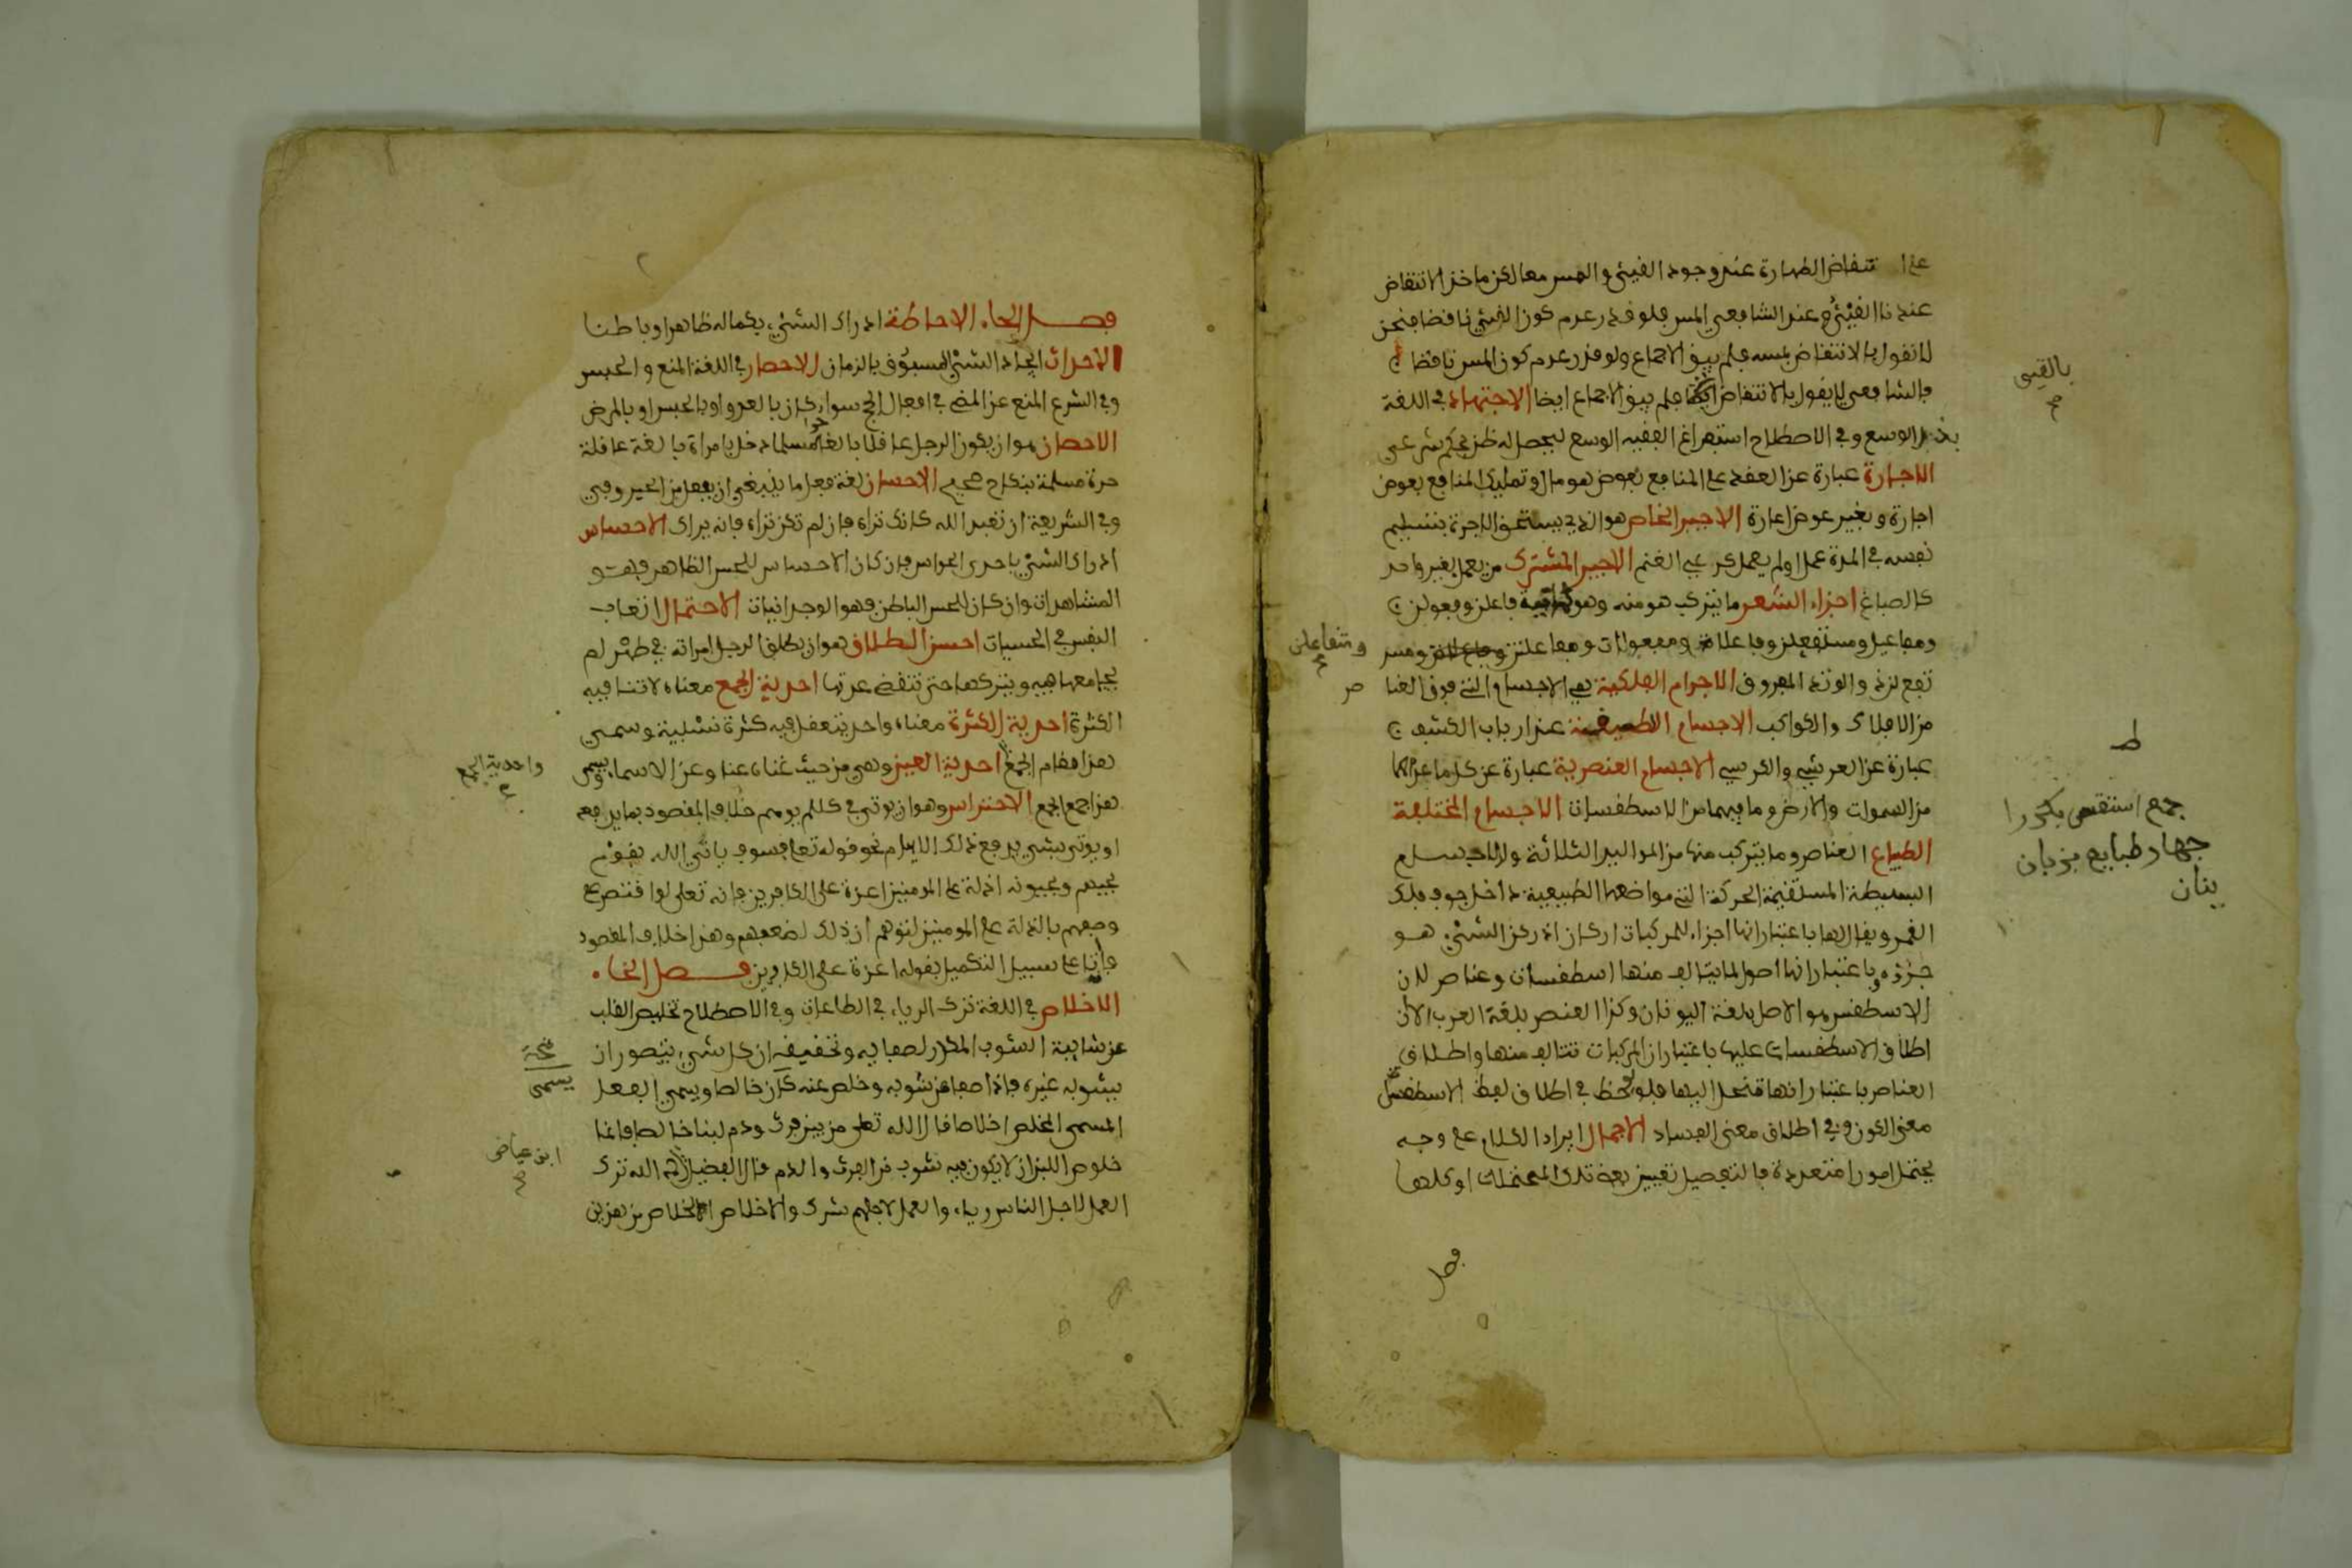 على انتقاض الطهارة عند وجود القيئ والمس معا لكن ماخذ الانتقاض
عندنا القيئ و عند الشافعي المس فلو قدر عدم كون القيئ ناقضا فنحن
لا نقول بالانتقاض بمسه فلم يبق الاجماع ولو قدر عدم كون المس ناقضا
فالشافعي لا يقول بالانتقاض فلم يبق الاجماع ايضا الاجتهاد في اللغة
بذل الوسع وفي الاصطلاح استفراغ الفقيه الوسع ليحصل له ظن بحكم شرعي
الاجارة عبارة عن العقد على المنافع بعوض هو مال وتمليك المنافع بعوض
اجارة وبغير عوض اعارة الاجير الخاص هو الذي يستحق الاجرة بتسليم
نفسه في المدة عمل اولم يعمل كرعي الغنم الاجير المشترك من يعمل لغير واحد
كالصباغ اجزاء الشعر ما يتركب هو منه وهو ثمانية فاعلن وفعولن
ومفاعيل ومستفعلن وفاعلاتن ومفعولات ومفاعلتن
ومتفاعلن
تقع لزن والوتد المفروق الاجرام الفلكية هي الاجسام التي فوق العنا
صر
من الافلاك والكواكب الاجسام الطبيعية عند ارباب الكشف
عبارة عن العرش والكرسي الاجسام العنصرية عبارة عن كل ما عداهما
من السموات والارض وما فيهما من الاسطقسات الاجسام المختلفة
الطبايع العناصر وما يتركب منها من المواليد الثلاثة والاجسام
البسيطة المستقيمة الحركة التي مواضعها الطبيعية داخل جوف فلك
القمر ويقال لها باعتبار انها اجزاء للمركبات اركان اذ ركن الشئ هو
جزؤه وباعتبار انها اصول لما يتالف منها اسطقسات وعناصر لان
الاسطقس هو الاصل بلغة اليونان وكذا العنصر بلغة العرب الا ان
اطلاق الاسطقسات عليها باعتبار ان المركبات تتالف منها واطلاق
العناصر باعتبار انها تنحل اليها فلوحظ في اطلاق لفظ الاسطقس
معنى الكون وفي اطلاق معنى الفساد الاجمال ايراد الكلام على وجه
يحتمل امورا متعددة فالتفصيل تعيين بعض تلك المحتملات او كلها
فصل
بالقيئ
ط
جمع استقص
جهار طبايع بزبان
فصل الحاء الاحاطة ادراك الشئ بكماله ظاهرا وباطنا
الاحداث ايجاد الشئ المسبوق بالزمان الاحصار في اللغة المنع والحبس
وفي الشرع المنع عن المضي في افعال الحج سواء كان بالعدو او بالحبس او بالمرض
الاحصان هو ان يكون الرجل عاقلا بالغا حرا مسلما دخل بامراة بالغة عاقلة
حرة مسلمة بنكاح صحيح الاحسان لغة فعل ما ينبغي ان يفعل من الخير وفي
وفي الشريعة ان تعبد الله كانك تراه فان لم تكن تراه فانه يراك الاحساس
ادراك الشئ باحدى الحواس فان كان الاحساس للحس الظاهر فهو
المشاهدات وان كان للحس الباطن فهو الوجدانيات الاحتمال اتعاب
النفس في الحسيات احسن الطلاق هو ان يطلق الرجل امراته في طهر لم
يجامعها فيه ويتركها حتى تنقضي عدتها احدية الجمع معناه لا تنافيه
الكثرة احدية الكثرة معناه واحد يتعقل فيه كثرة نسبية وسمي
هذا مقام الجمع احدية العين وهي من حيث غناه عنا وعن الاسماء ويسمى
واحدية الجمع
هذا جمع الجمع الاحتراس وهو ان يوتى في كلام يوهم خلاف المقصود بما يدفعه
او يوتى بشئ يدفع ذلك الايهام نحو قوله تعالى فسوف ياتي الله بقوم
يحبهم ويحبونه اذلة على المومنين اعزة على الكافرين فانه تعالى لو اقتصر على
وصفهم بالذلة على المومنين لتوهم ان ذلك لضعفهم وهذا خلاف المقصود
فاتى على سبيل التكميل بقوله اعزة على الكافرين فصل الخاء
الاخلاص في اللغة ترك الرياء في الطاعات وفي الاصطلاح تخليص القلب
عن شايبة الشوب المكدر لصفايه وتحقيقه ان كل شئ يتصور ان
يشوبه غيره فاذا صفا عن شوبه وخلص عنه كان خالصا ويسمى الفعل
يسمى
المسمى المخلص اخلاصا قال الله تعالى من بين فرث ودم لبنا خالصا فانما
خلوص اللبن ان لا يكون فيه شوب من الفرث والدم قال الفضيل رحمه الله ترك
ابن عياض
العمل لاجل الناس رياء والعمل لاجلهم شرك والاخلاص الخلاص من هذين